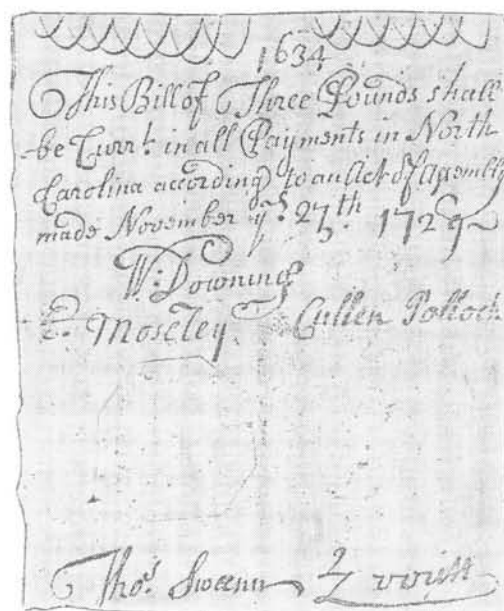 1634
This Bill of Three Pounds shall
be Curr.t in all Payments in North
Carolina according to an Act of Assembly
made November y.e 27th. 1729
W: Downing
E: Moseley Cullen Pollock
Tho.s Swann